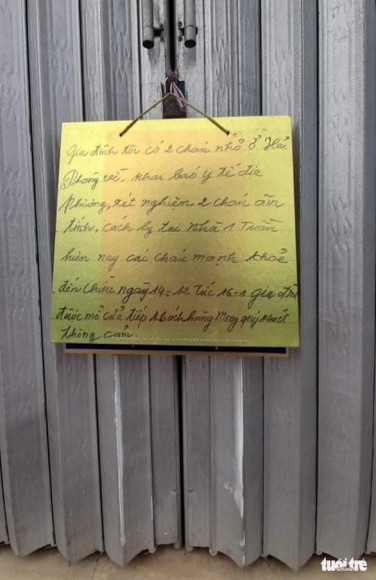 Gia đình tôi có 2 cháu nhỏ ở Hải
Phòng về, khai báo y tế địa
phương, xét nghiệm 2 cháu âm
tính, cách ly tại nhà 1 tuần
hiện nay các cháu mạnh khoẻ
đến chiều ngày 19-12 tức 16-1 gia đình
được mở cửa tiếp khách hàng mong quý khách
thông cảm.
tuổi trẻ